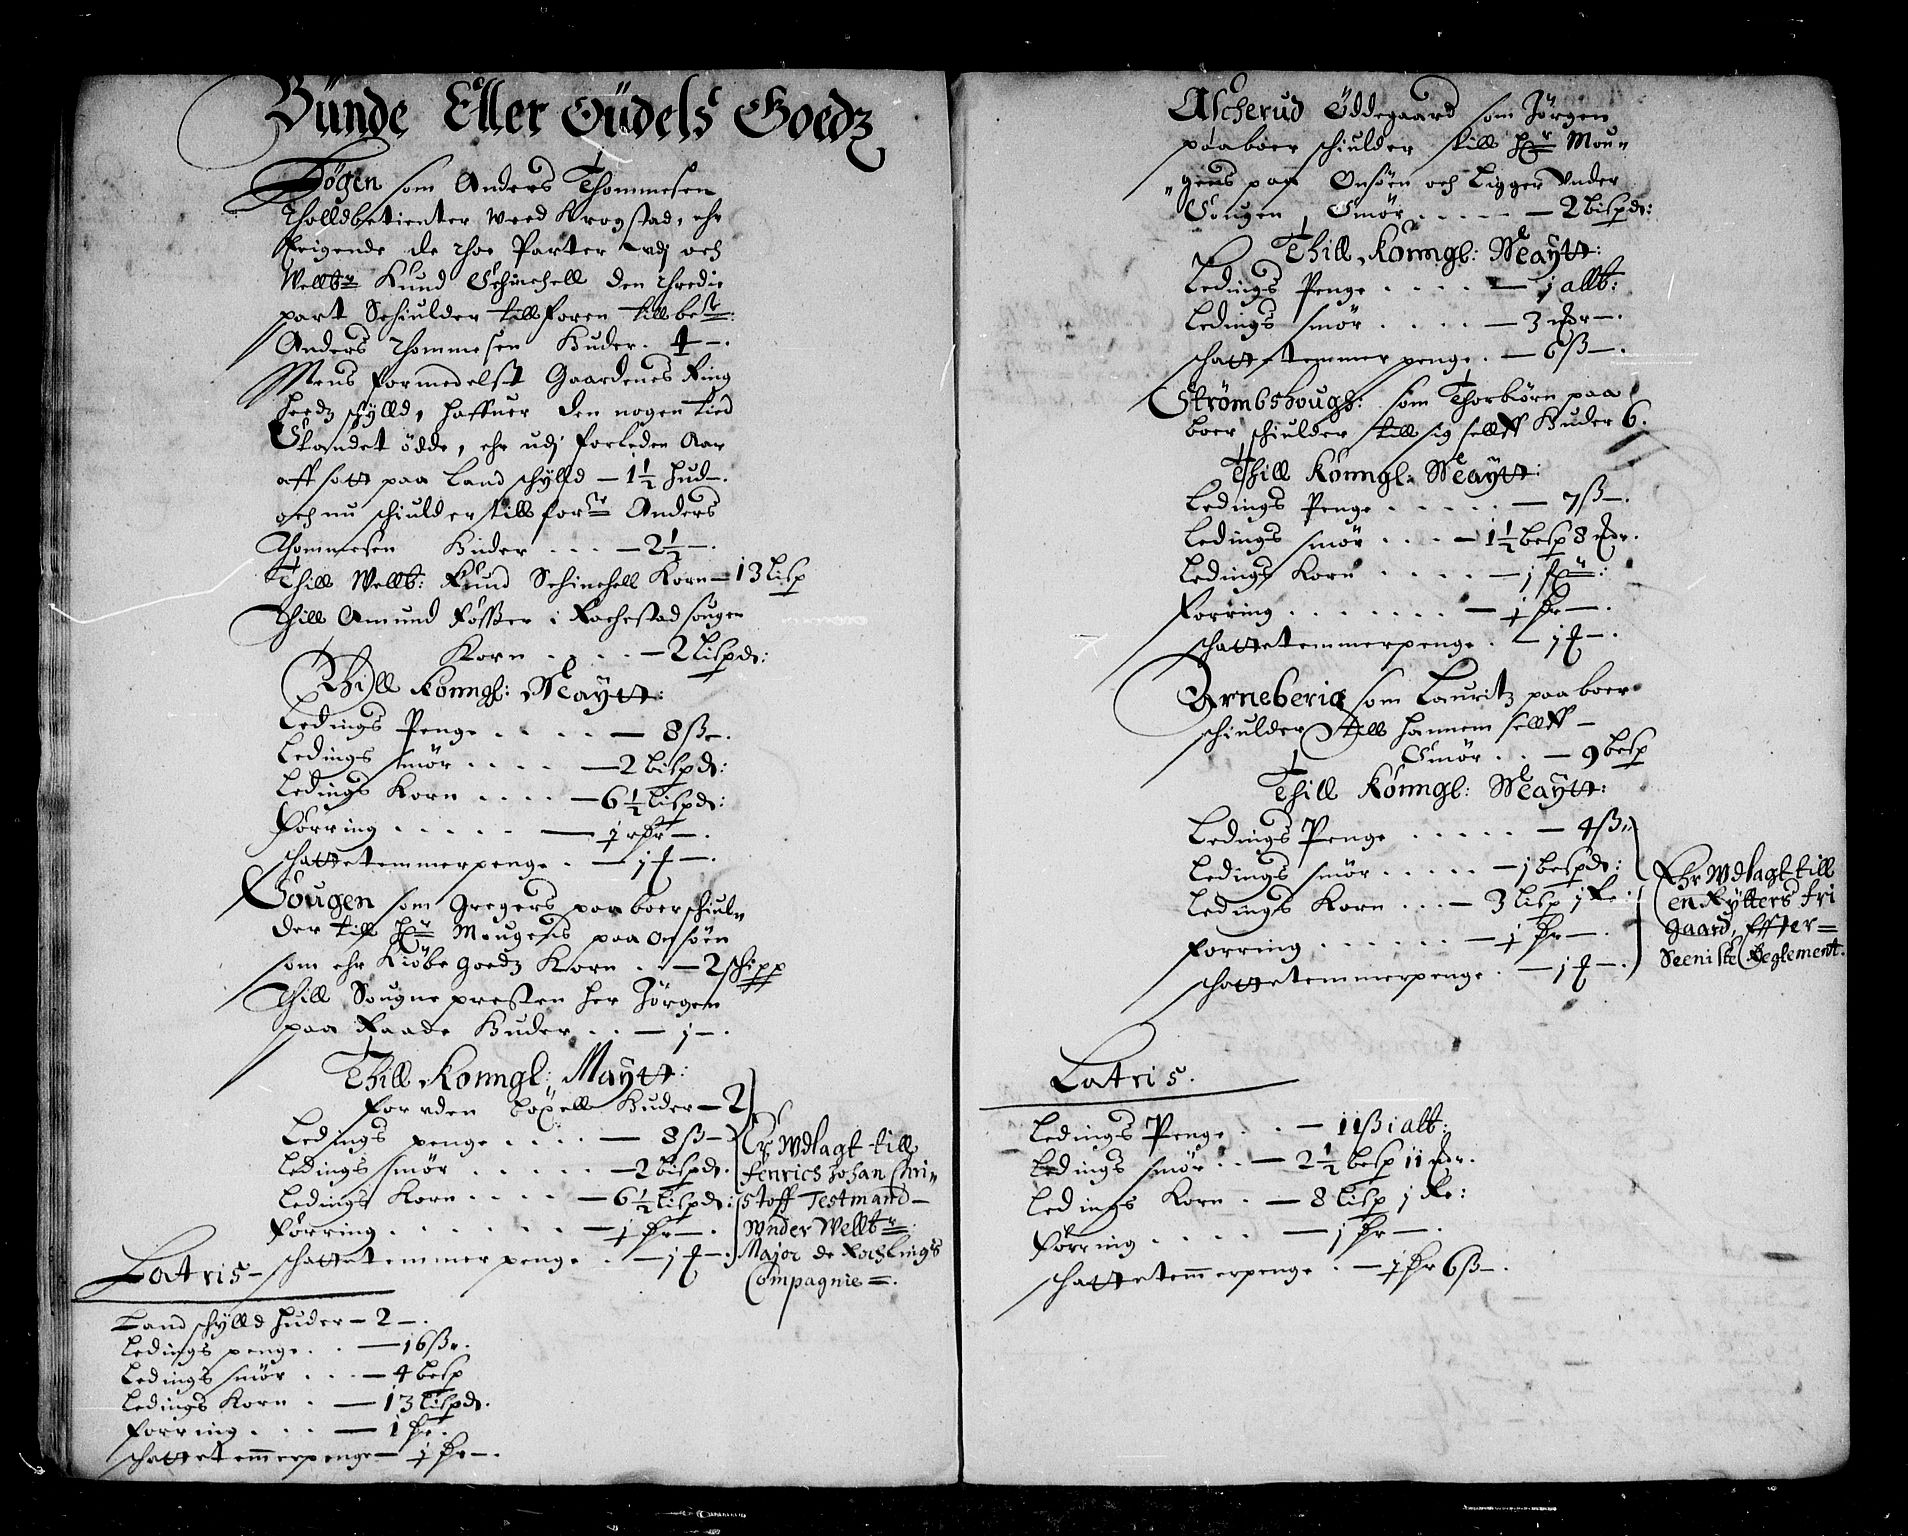 Bünde Eller Güdels Goedz
Högen som Anders Thommesen
Tholldbetienter weed Krogstad, ehr
Eeigende de thoe Parter udj och
Wellb: Knud Schinchell den thredie
part Schiulder till foren till be:
Anders Thommesen Huder. 4 —.
Mens formedelst Gaardenes Ring
heedz schylld, haffuer den nogen tied
Standet ödde, ehr udj forleden Aar
aff satt paa Landschylld — 1½ hud—.
och nu schiulder till for: Anders
Thommesen Huder . . . — 2½ —.
Thill Wellb: Knud Schinchell Korn — 13 lisp
Thill Amund Fösser i Rachestad sougen
Korn . . . . — 2 lispd:
Thill Konngl: Maytt:
Ledings Penge . . . . . — 8 ß —.
Ledings smör . . . . — 2 bispd:
Ledings Korn . . . . — 6½ lispd:
Förring . . . . . — 1 ør —.
schattetemmerpenge . — 1 f —.
Sougen som Gregers paa boer schiul=
der till Hr Mougens paa Onsöen
som ehr Kiöbe goedz Korn . . — 2 schipp
Thill Sougne presten her Jörgen
paa Raade Huder . . — 1 —.
Thill Konngl: Maytt:
For uden böxell Huder — 2
Ledings penge . . . . — 8 ß —
Ledings smör . . . . . — 2 bispd.
Ledings Korn . . . . — 6½ lispd:
Förring . . . . . . — 1 ør —.
schattetemmerpenge . — 1 f —.
Er Wdlagt till
fenrich Johan Chri=
stoff Testmand —
Wnder Wellb:
Major de Rochlings
Compagnie =.
Latris —
Landschylld huder — 2 —.
Ledings penge . . — 16 ß.
Ledings smör . . . — 4 besp
Ledings Korn . — 13 lispd.
Förring . . . — 1 ør.
schattetemmerpenge — 1 ør —.
Ascherud Öddegaard som Jörgen
paaboer schiulder till Hr Mou=
=gens paa Onsöen och ligger under
Sougen, Smör . . . . . — 2 bispd:
Thill Konngl: Maytt:
Ledings Penge . . . . . — 1 allb:
Ledings smör . . . . — 3 mr —.
schattetemmerpenge . — 6 ß —.
Strömbshough: som Thorbiörn paa
boer schiulder till sig sellff Huder 6.
Thill Konngl: Maytt:
Ledings Penge . . . . . — 7 ß —.
Ledings smör . . . . — 1½ besp 8 mr.
Ledings Korn . . . . — 1
Förring . . . . . . . — 1 ør —.
schattetemmerpenge . — 1 f —.
Arneberig som Lauritz paaboer
schiulder till hannem sellff —
Smör . . — 9 besp
Thill Konngl: Maytt:
Ledings Penge . . . . . — 4 ß
Ledings smör . . . . . — 1 bespd:
Ledings Korn . . . — 3 lisp 1 Re:
Förring . . . . . . — 1 ør —.
schattetemmerpenge . — 1 f —.
Ehr Wdlagt till
en Rytters fri
gaard, Effter=
Seeniste Reglement.
Latris.
Ledings Penge . . — 11 ß 1 alb:
Ledings smör . . — 2½ besp 11 mr.
Ledings Korn . — 8 lisp 1 Re:
Förring . . . . . — 1 ør —.
schattetemmerpenge . — 1 ør 6 ß —.